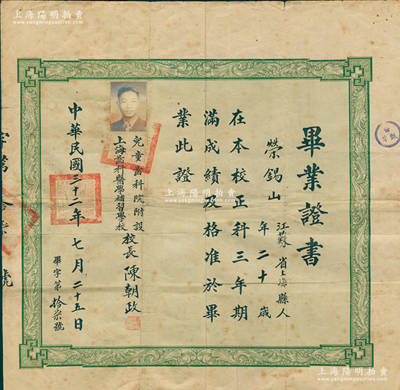 上海陽明拍賣
www.yangmingauction.com
畢業證書
榮錫山
江蘇省上海縣人
年二十歲
在本校正科三年期
滿成績及格准於畢
業此證
兒童齒科院附設
上海齒科醫學補習學校
校長陳朝政
中華民國三十二年七月二十五日
畢字第拾柒號
號
上海陽明拍賣
www.yangmingauction.com